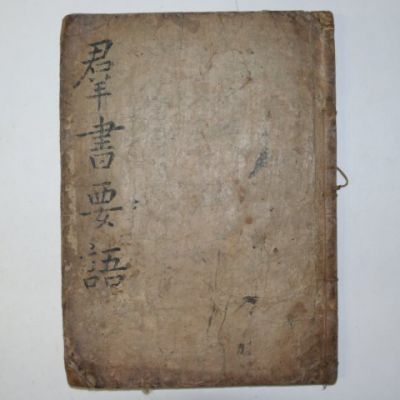 羣書要語